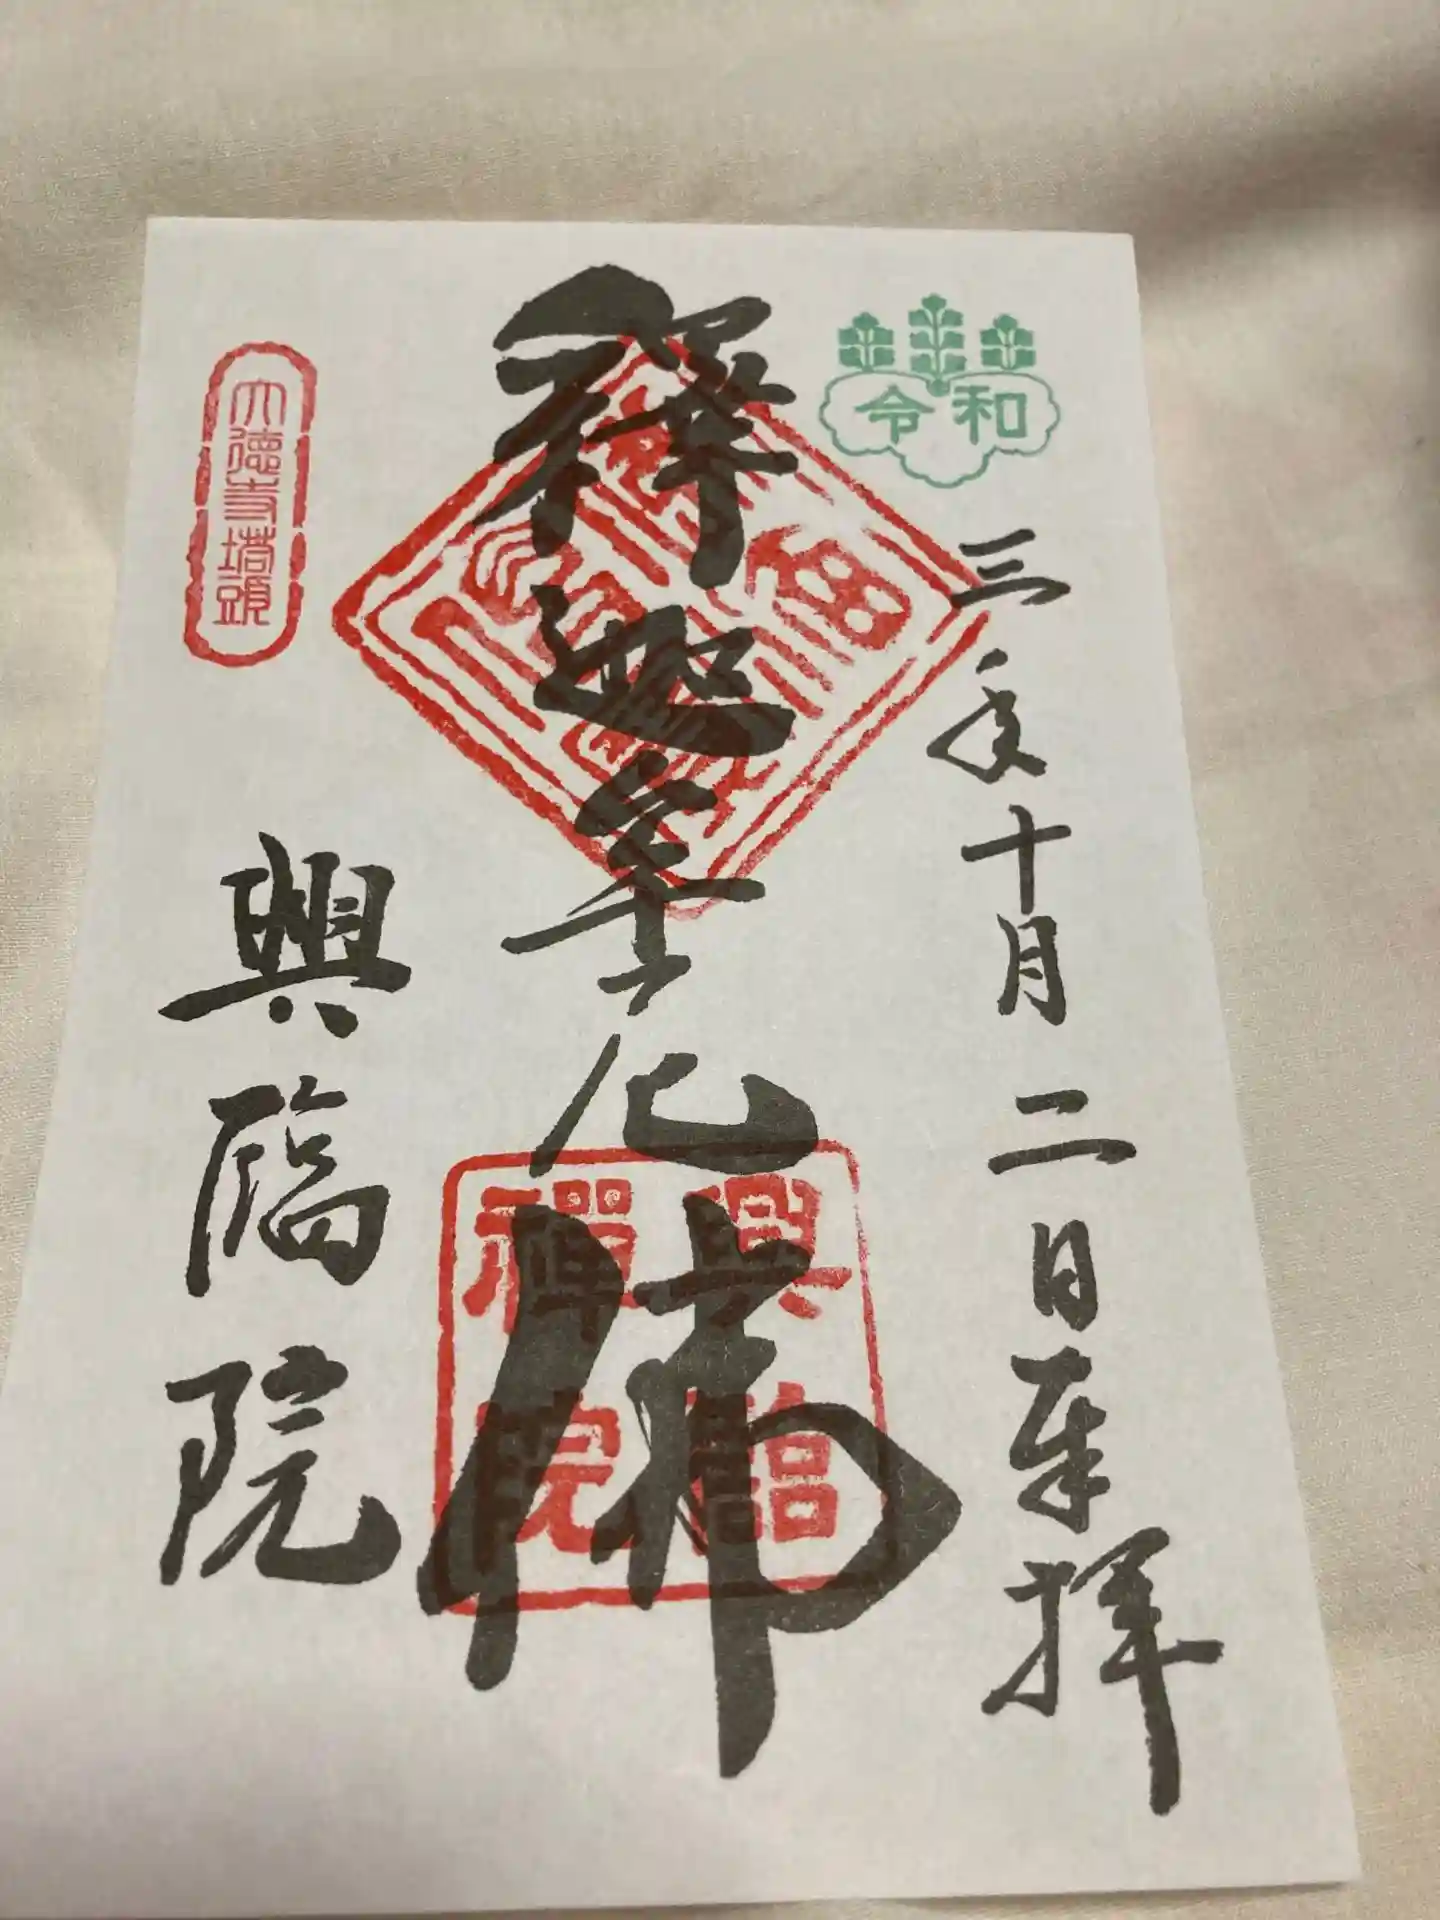 令和
三年十月二日奉拝
釋迦牟尼佛
興臨禅院
大徳寺塔頭
興臨院